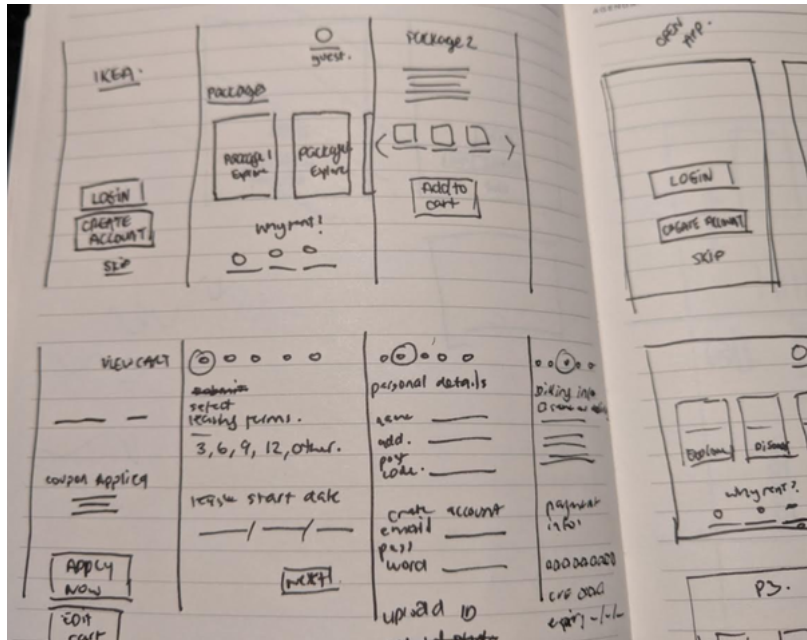 IKEA.
LOGIN
CREATE
ACCOUNT
SKIP
guest.
PACKAGES
PACKAGE 1
Explore
PACKAGE
Explore
Why rent?
PACKAGE 2
Add to
cart
VIEW CART
coupon applied
APPLY
NOW
EDIT
CART
select
leasing terms.
3, 6, 9, 12, other.
lease start date
NEXT
personal details
name
add.
post
code.
create account
email
pass
word
upload ID
billing info
payment
info:
expiry -/-/-
OPEN
APP.
LOGIN
CREATE ACCOUNT
SKIP
Why rent?
P3.